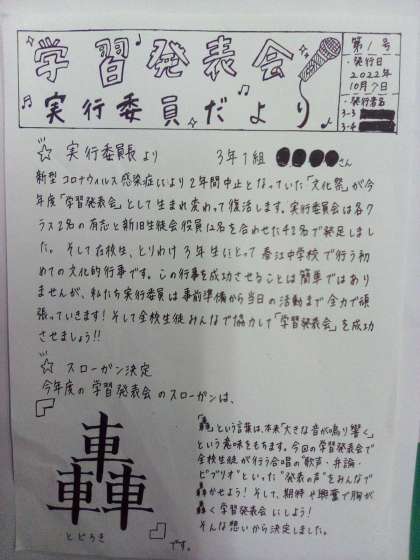 学習発表会
実行委員だより
第1号
・発行日
2022年
10月7日
・発行者名
3-3
3-4
☆ 実行委員長より 3年1組 ●●●●さん
新型コロナウィルス感染症により2年間中止となっていた「文化祭」が今
年度「学習発表会」として生まれ変わって復活します。実行委員会は各ク
ラス2名の有志と新旧生徒会役員12名を合わせた42名で発足しまし
た。そして在校生、とりわけ3年生にとって春江中学校で行う初
めての文化的行事です。この行事を成功させることは簡単ではあり
ませんが、私たち実行委員は事前準備から当日の活動まで全力で頑
張っていきます!そして全校生徒みんなで協力して「学習発表会」を成功
させましょう!!
☆ スローガン決定
今年度の学習発表会のスローガンは、
轟
とどろき
です。
「轟」という言葉は、本来「大きな音が鳴り響く」
という意味をもちます。今回の学習発表会で
全校生徒が行う合唱の"歌声・弁論・
ビブリオ"といった"発表の声"をみんなで
轟かせよう!そして、期待や興奮で胸が
轟く学習発表会にしよう!
そんな想いから決定しました。